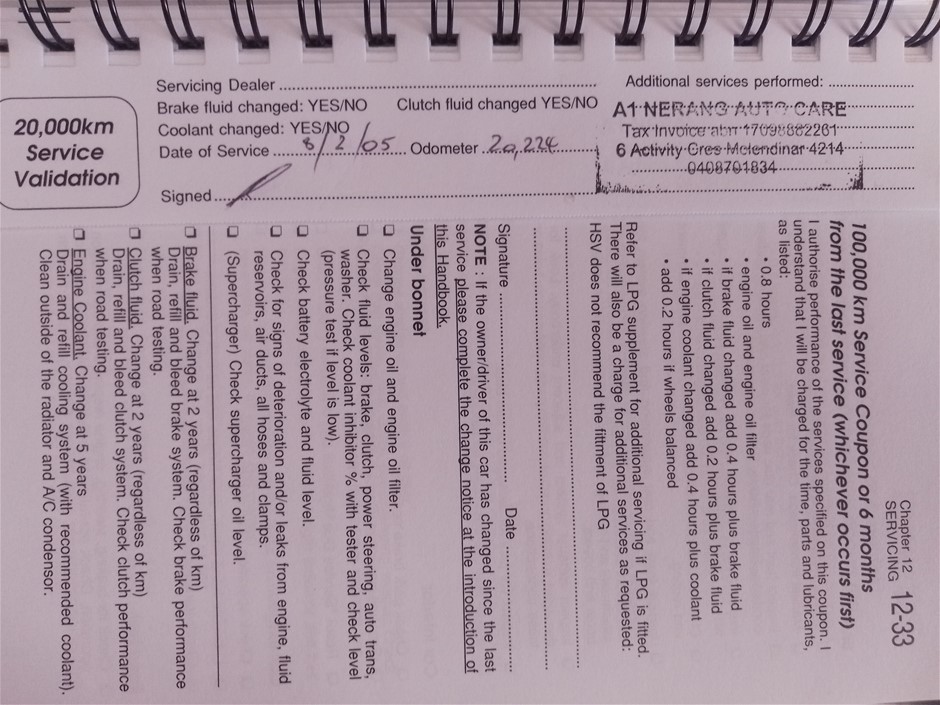 20,000km
Service
Validation
Servicing Dealer
Brake fluid changed: YES/NO Clutch fluid changed YES/NO
Coolant changed: YES/NO
Date of Service 8/2/05 Odometer 20,224
Signed
Additional services performed:
A1 NERANG AUTO CARE
Tax Invoice abn 17098882261
6 Activity Cres Molendinar 4214
0408701834
Chapter 12
SERVICING 12-33
100,000 km Service Coupon or 6 months
from the last service (whichever occurs first)
I authorise performance of the services specified on this coupon. I
understand that I will be charged for the time, parts and lubricants,
as listed:
• 0.8 hours
• engine oil and engine oil filter
• if brake fluid changed add 0.4 hours plus brake fluid
• if clutch fluid changed add 0.2 hours plus brake fluid
• if engine coolant changed add 0.4 hours plus coolant
• add 0.2 hours if wheels balanced
Refer to LPG supplement for additional servicing if LPG is fitted.
There will also be a charge for additional services as requested:
HSV does not recommend the fittment of LPG
Signature Date
NOTE : If the owner/driver of this car has changed since the last
service please complete the change notice at the introduction of
this Handbook.
Under bonnet
❑ Change engine oil and engine oil filter.
❑ Check fluid levels: brake, clutch, power steering, auto trans,
washer. Check coolant inhibitor % with tester and check level
(pressure test if level is low).
❑ Check battery electrolyte and fluid level.
❑ Check for signs of deterioration and/or leaks from engine, fluid
reservoirs, air ducts, all hoses and clamps.
❑ (Supercharger) Check supercharger oil level.
❑ Brake fluid. Change at 2 years (regardless of km)
Drain, refill and bleed brake system. Check brake performance
when road testing.
❑ Clutch fluid. Change at 2 years (regardless of km)
Drain, refill and bleed clutch system. Check clutch performance
when road testing.
❑ Engine Coolant. Change at 5 years
Drain and refill cooling system (with recommended coolant).
Clean outside of the radiator and A/C condensor.